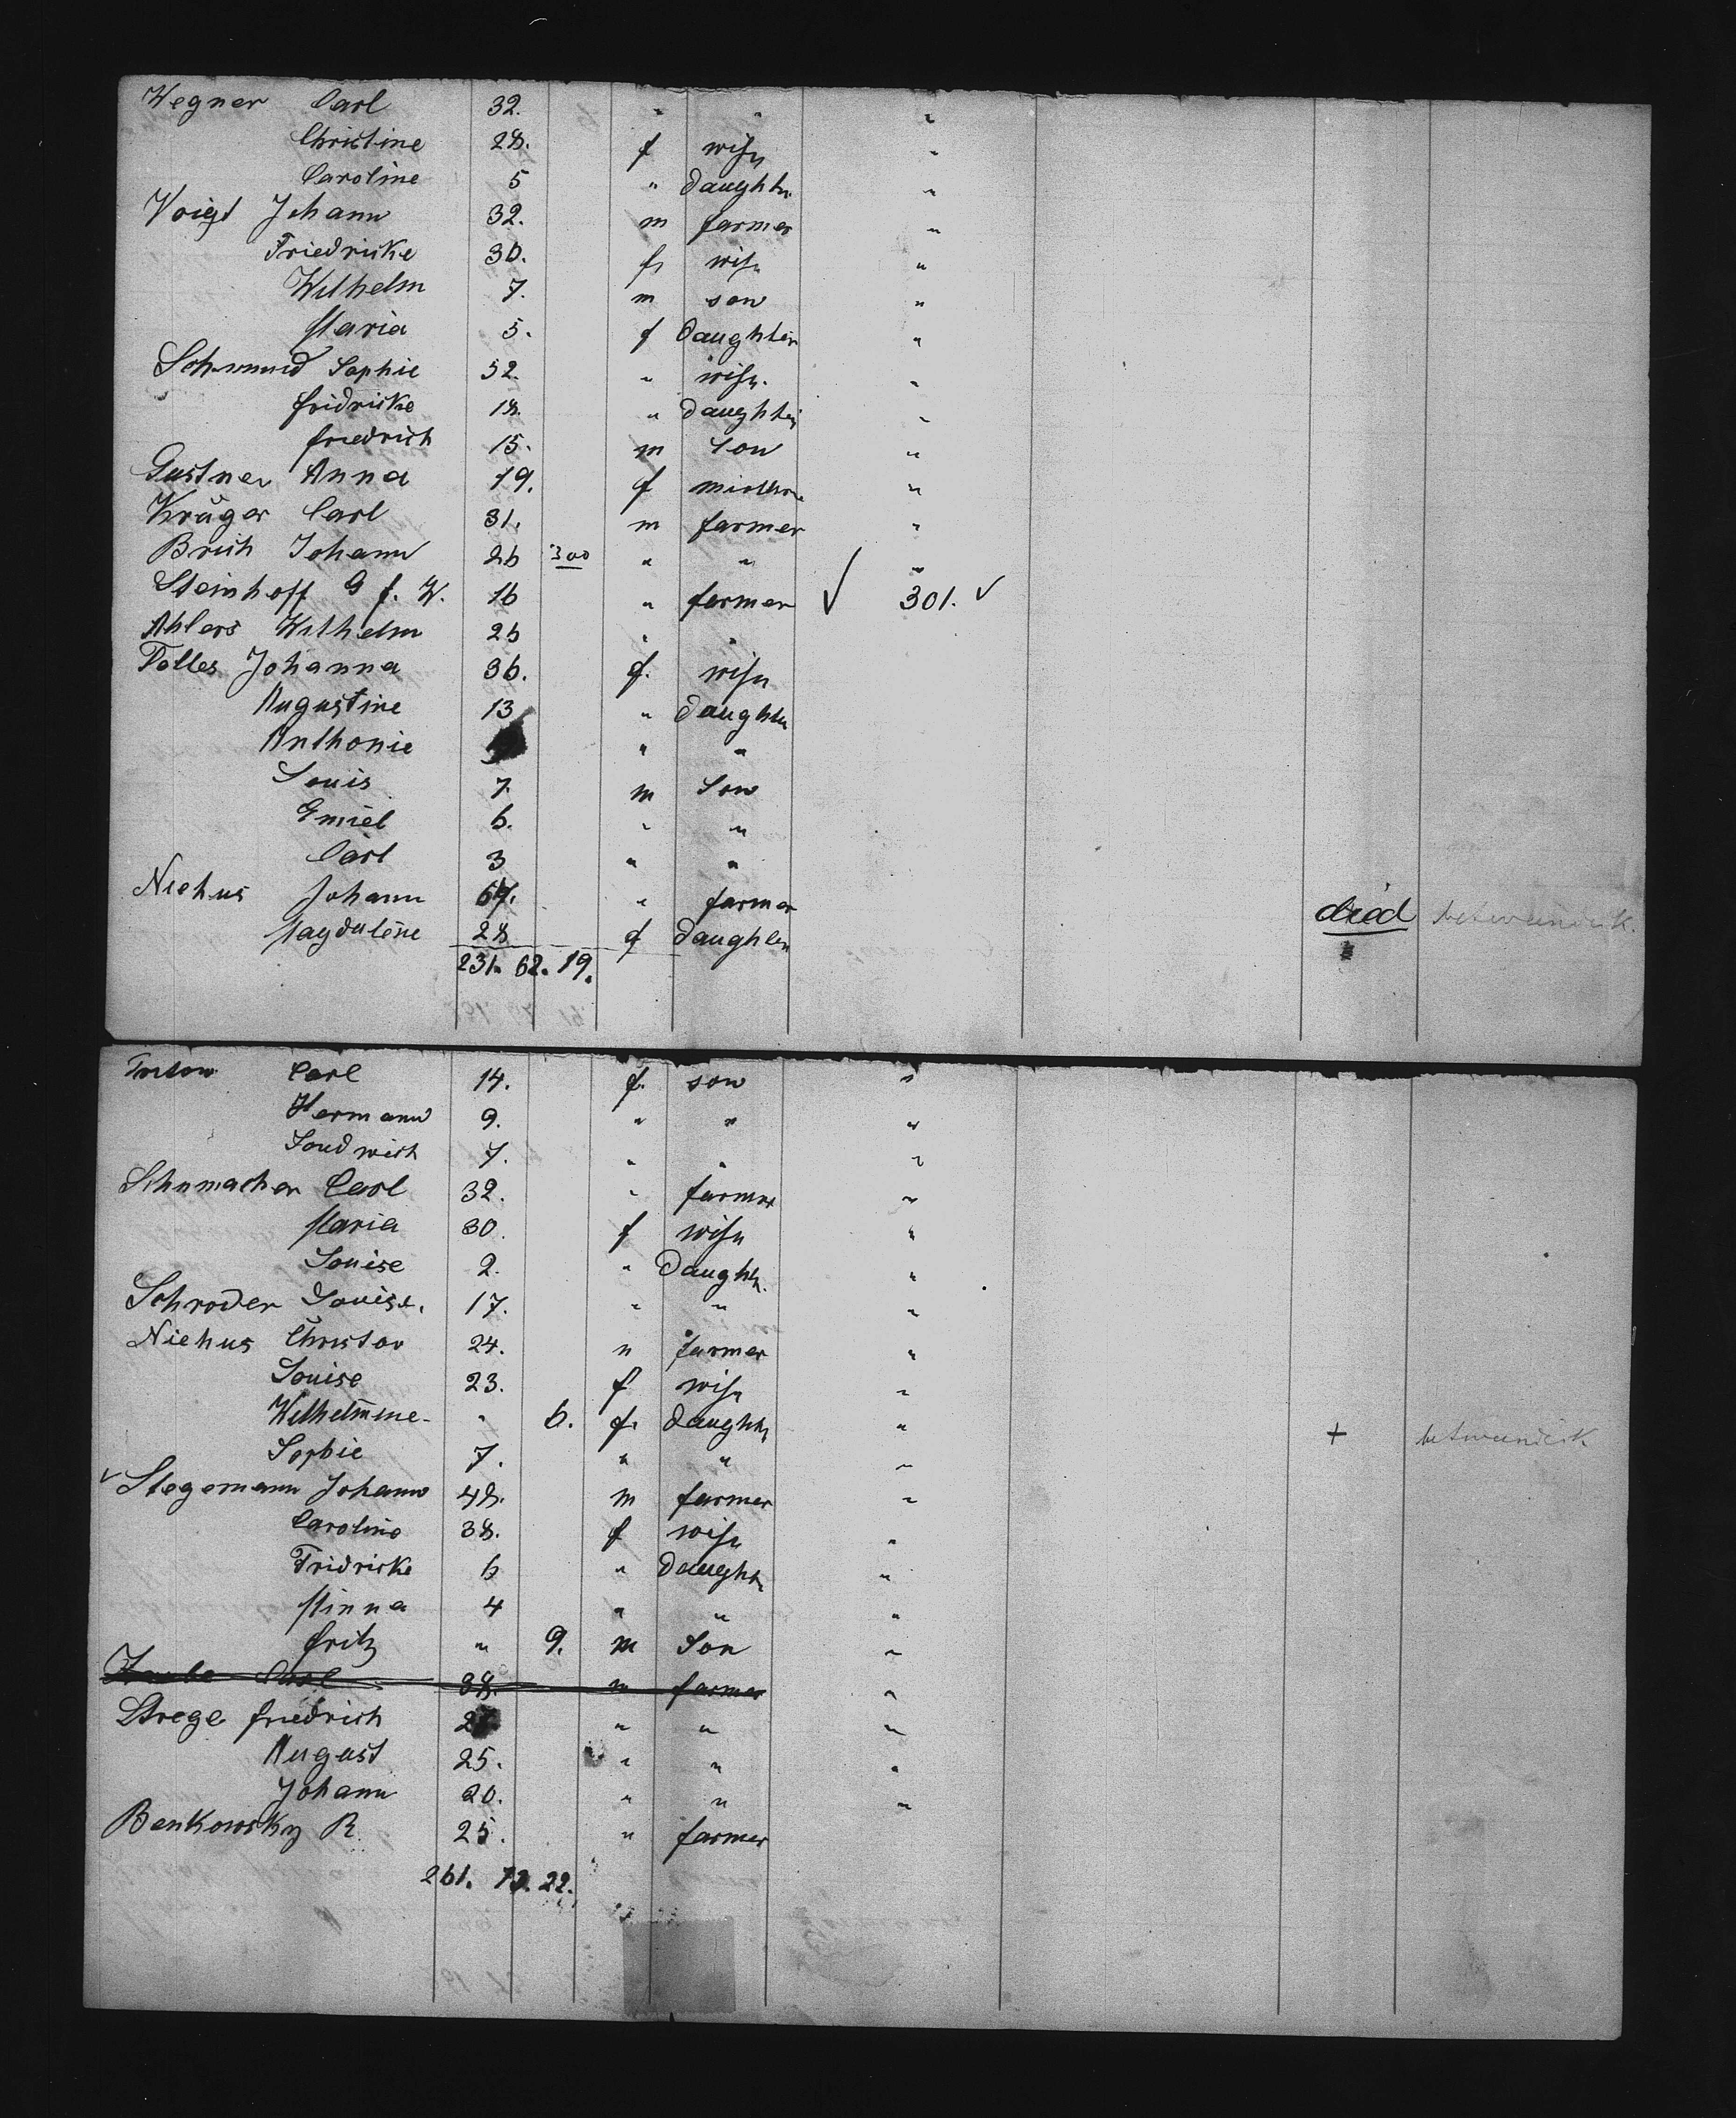 Wegner Carl 32. " " "
Christine 28. f wife "
Caroline 5 " daughter "
Voigt Johann 32. m farmer "
Friedricke 30. f wife "
Wilhelm 7. m son "
Maria 5. f daughter "
Sophie 52. " wife. "
fridricke 18. " daughter "
friedrich 15. m Son "
Gustner Anna 19. f "
Krüger Carl 31. m farmer "
Brich Johann 26 300 " " "
Steinhoff G f. W. 16 " farmer ✓ 301. ✓
Ahlers Wilhelm 26 " "
Tolles Johanna 36. f. wife
Augustine 13 " daughter
Anthonie " "
Louis 7. m Son
Emiel 6. " "
Carl 3 " "
Niehus Johann " farmer died
Magdalene 28 f daughter
231. 62. 19.
Carl 14. f. son "
Hermann 9. " " "
Loudwich 7. " " "
Schumacher Carl 32. " farmer "
Maria 30. f wife "
Louise 2. " daughter "
Schroder Louise. 17. " " "
Niehus Christov 24. m farmer "
Louise 23. f wife "
Wilhelmine " 6. f. daughter " +
Sophie 7. " " "
✓ Stegemann Johann 48. m farmer "
Caroline 38. f wife "
Fridricke 6 " daughter "
Minna 4 " " "
fritz " 9. m Son "
Carl 38. m farmer "
Strege friedrich " " "
August 25. " " "
Johann 20. " " "
Benkowsky R. 25. " farmer
261. 73. 22.